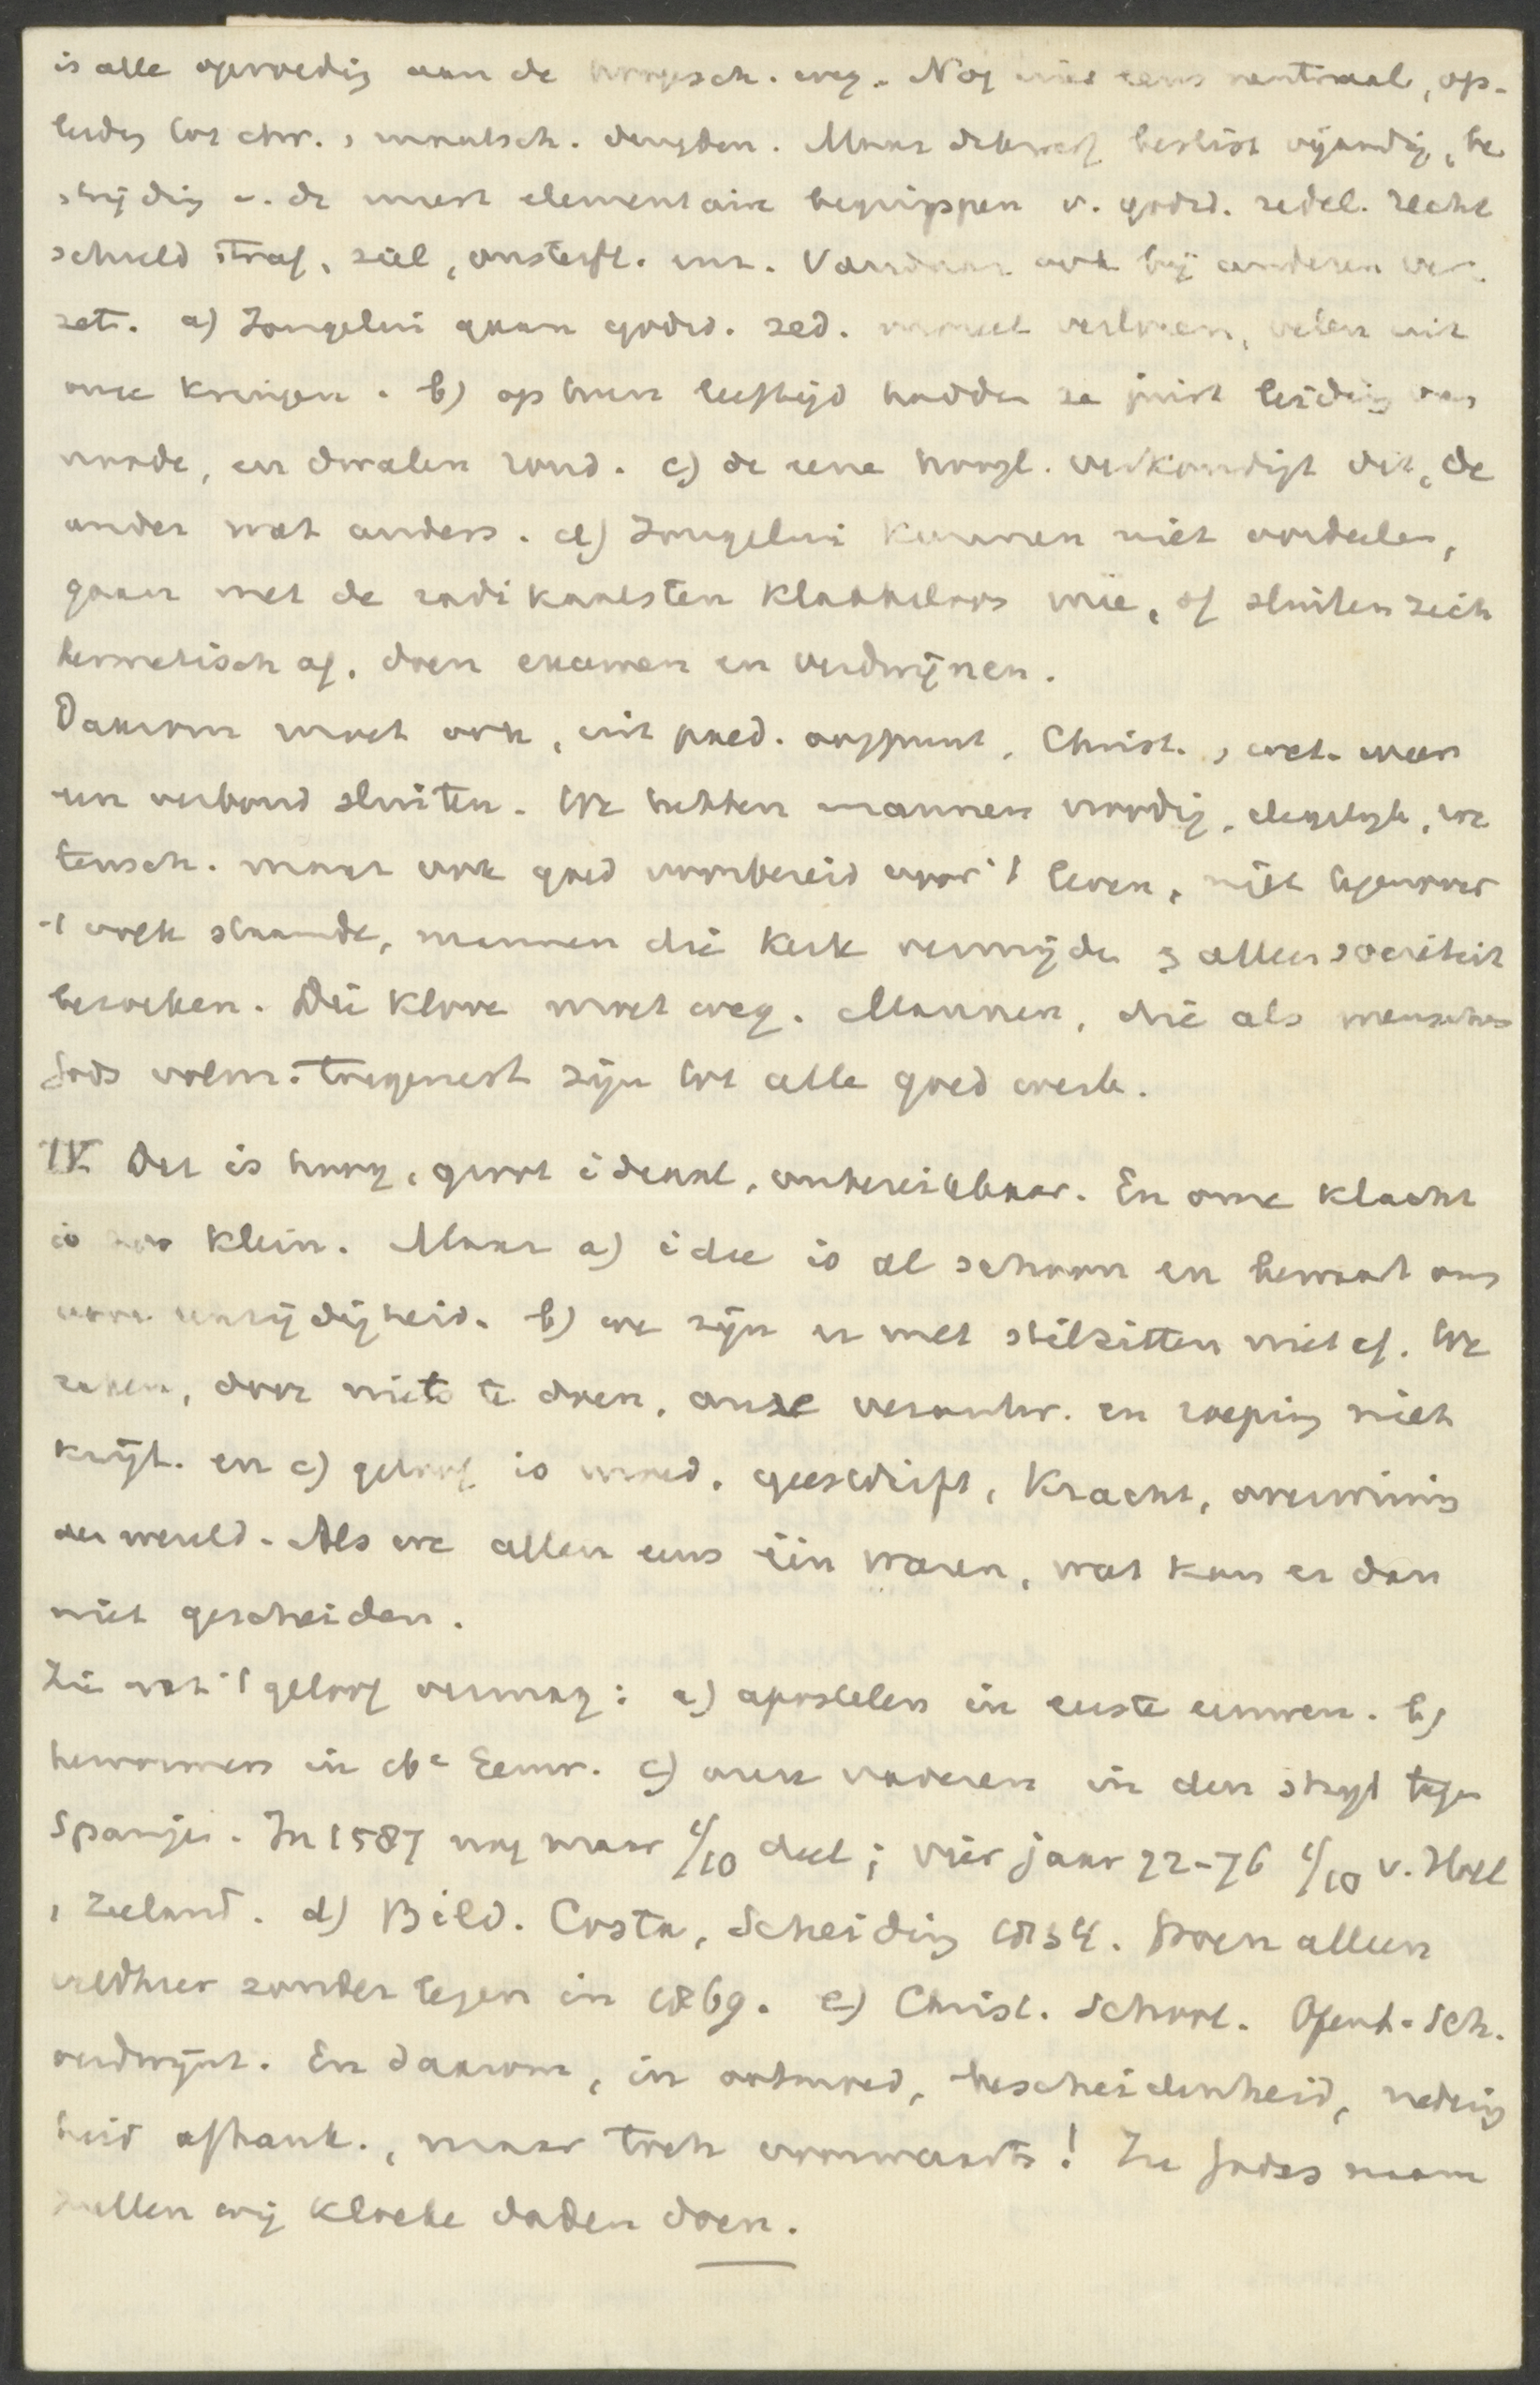 is alle opvoedig aan de hoogesch. weg. Nog niet eens neutraal, op-
leidg tot chr. , maatsch. deugden. Maar dikwerf beslist vijandig, be
strijdig v. de meest elementaire begrippen v. godsd. zedel. recht
schuld straf, ziel, onsterfl. enz. Vandaar ook bij anderen ver-
zet. a) Jongelui gaan godsd. zed. verloren, velen uit
onze kringen. b) op hun leeftijd hadden ze juist leiding van
noode, en dwalen rond. c) de eene hoogl. verkondigt dit, de
ander wat anders. d) Jongelui kunnen niet oordeelen,
gaan met de radikaalsten klakkeloos mee, of sluiten zich
hermetisch af, doen examen en verdwijnen.
Daarom moet ook, uit paed. oogpunt, Christ. , wet. weer
een verbond sluiten. We hebben mannen noodig, degelijk, we
tensch. maar ook goed voorbereid voor 't leven, niet tegenover
't volk staande, mannen die kerk vermijden & alleen sociëteit
bezoeken. Die kloove moet weg. Mannen, die als menschen
Gods volm. toegerust zijn tot alle goed werk.
IV. Dit is hoog, groot ideaal, onbereikbaar. En onze klacht
is zoo klein. Maar a) idee is al schoon en bewaart ons
voor eenzijdigheid. b) we zijn er met stilzitten niet af. We
raken, door niets te doen, onze verantw. en roeping niet
kwijt. en c) geloof is moed, geestdrift, kracht, overwinning
der wereld. Als we allen eens één waren, wat kan er dan
niet geschieden.
Zie wat 't geloof vermag: a) apostelen in eerste eeuwen. b)
hervormers in 16e Eeuw. c) onze vaderen in den strijd tegen
Spanje. In 1587 nog maar 1/10 deel; vier jaar 72-76 1/10 v. Holl
, Zeeland. d) Bild. Costa, Scheiding 1834. Groen alleen
veldheer zonder leger in 1869. e) Christ. School. Openb. Sch.
verdwijnt. En daarom, in ootmoed, bescheidenheid, nedrig
heid afhank., maar toch voorwaarts! In Godes naam
zullen wij kloeke daden doen.